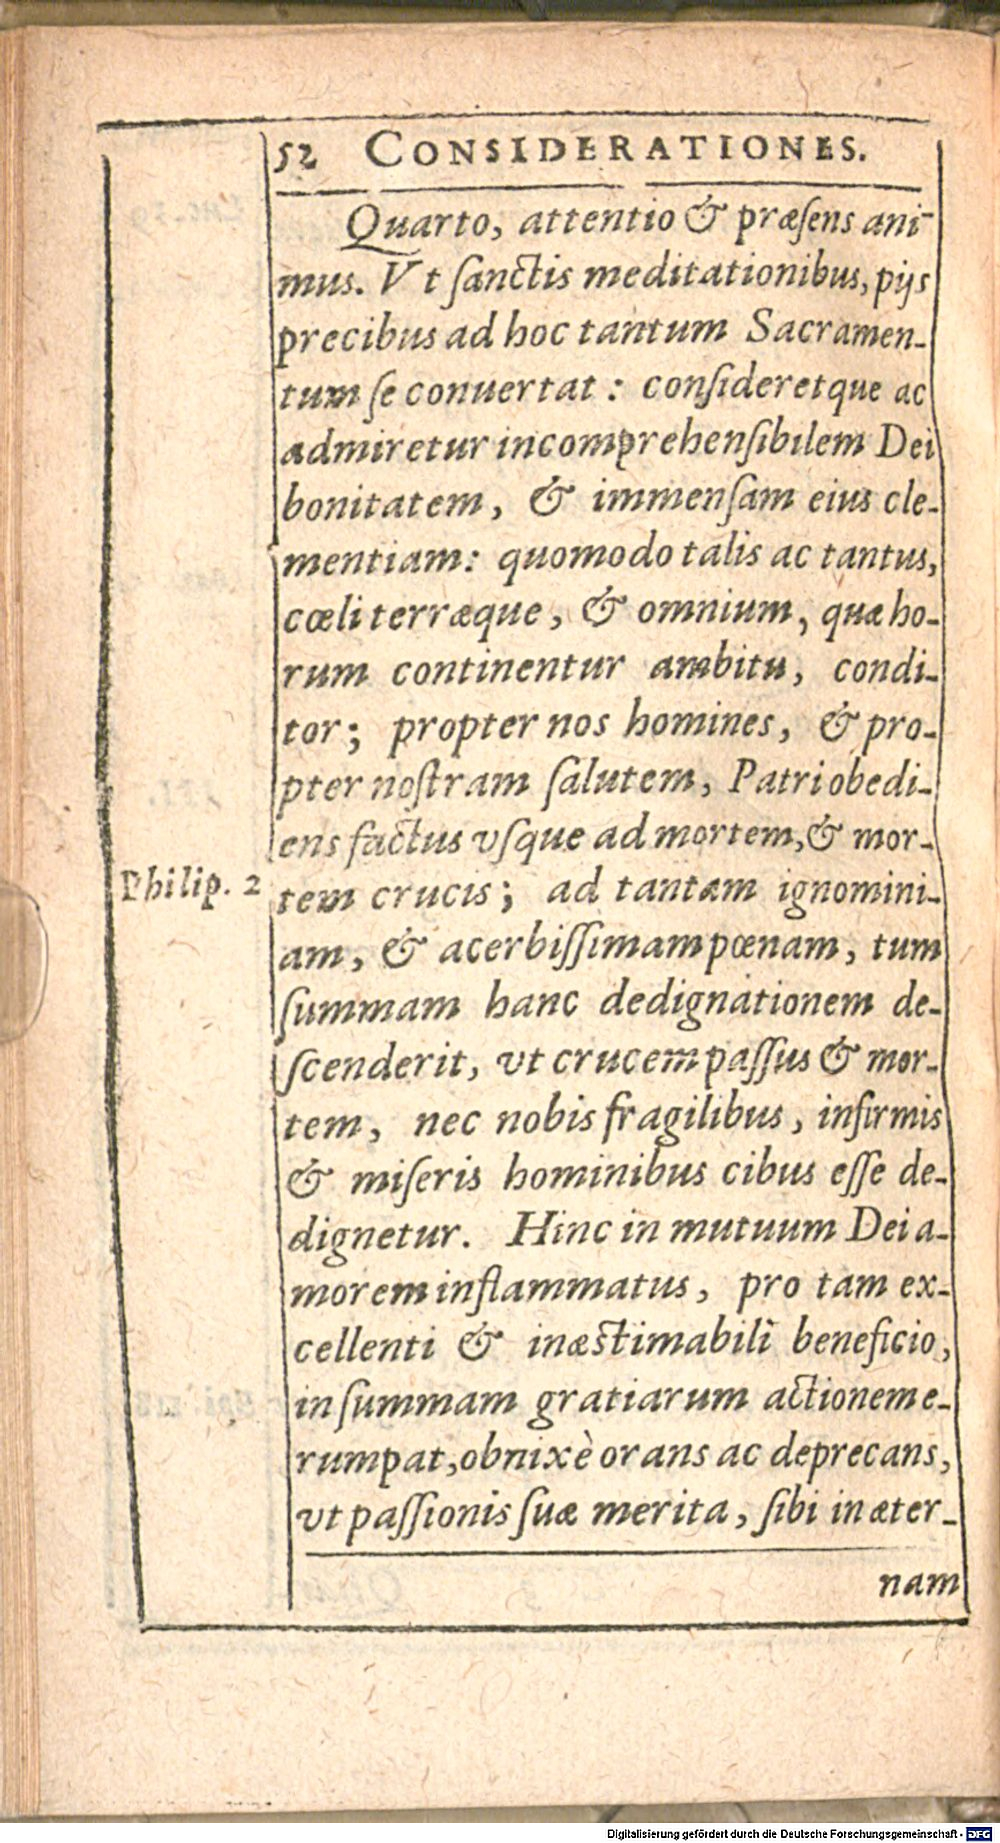 52 CONSIDERATIONES.
Quarto, attentio & præſens ani-
mus. Vt ſanctis meditationibus, pijs
precibus ad hoc tantum Sacramen-
tum ſe conuertat : conſideretque ac
admiretur incomprehenſibilem Dei
bonitatem, & immenſam eius cle-
mentiam: quomodo talis ac tantus,
cœli terræque, & omnium, quæ ho-
rum continentur ambitu, condi-
tor; propter nos homines, & pro-
pter noſtram ſalutem, Patri obedi-
ens factus vſque ad mortem, & mor-
Philip. 2 tem crucis; ad tantam ignomini-
am, & acerbiſſimam pœnam, tum
ſummam hanc dedignationem de-
ſcenderit, vt crucem paſſus & mor-
tem, nec nobis fragilibus, infirmis
& miſeris hominibus cibus eſſe de-
dignetur. Hinc in mutuum Dei a-
morem inflammatus, pro tam ex-
cellenti & inæstimabili beneficio,
in ſummam gratiarum actionem e-
rumpat, obnixè orans ac deprecans,
vt paſſionis ſuæ merita, ſibi in æter-
nam
Digitalisierung gefördert durch die Deutsche Forschungsgemeinschaft - DFG